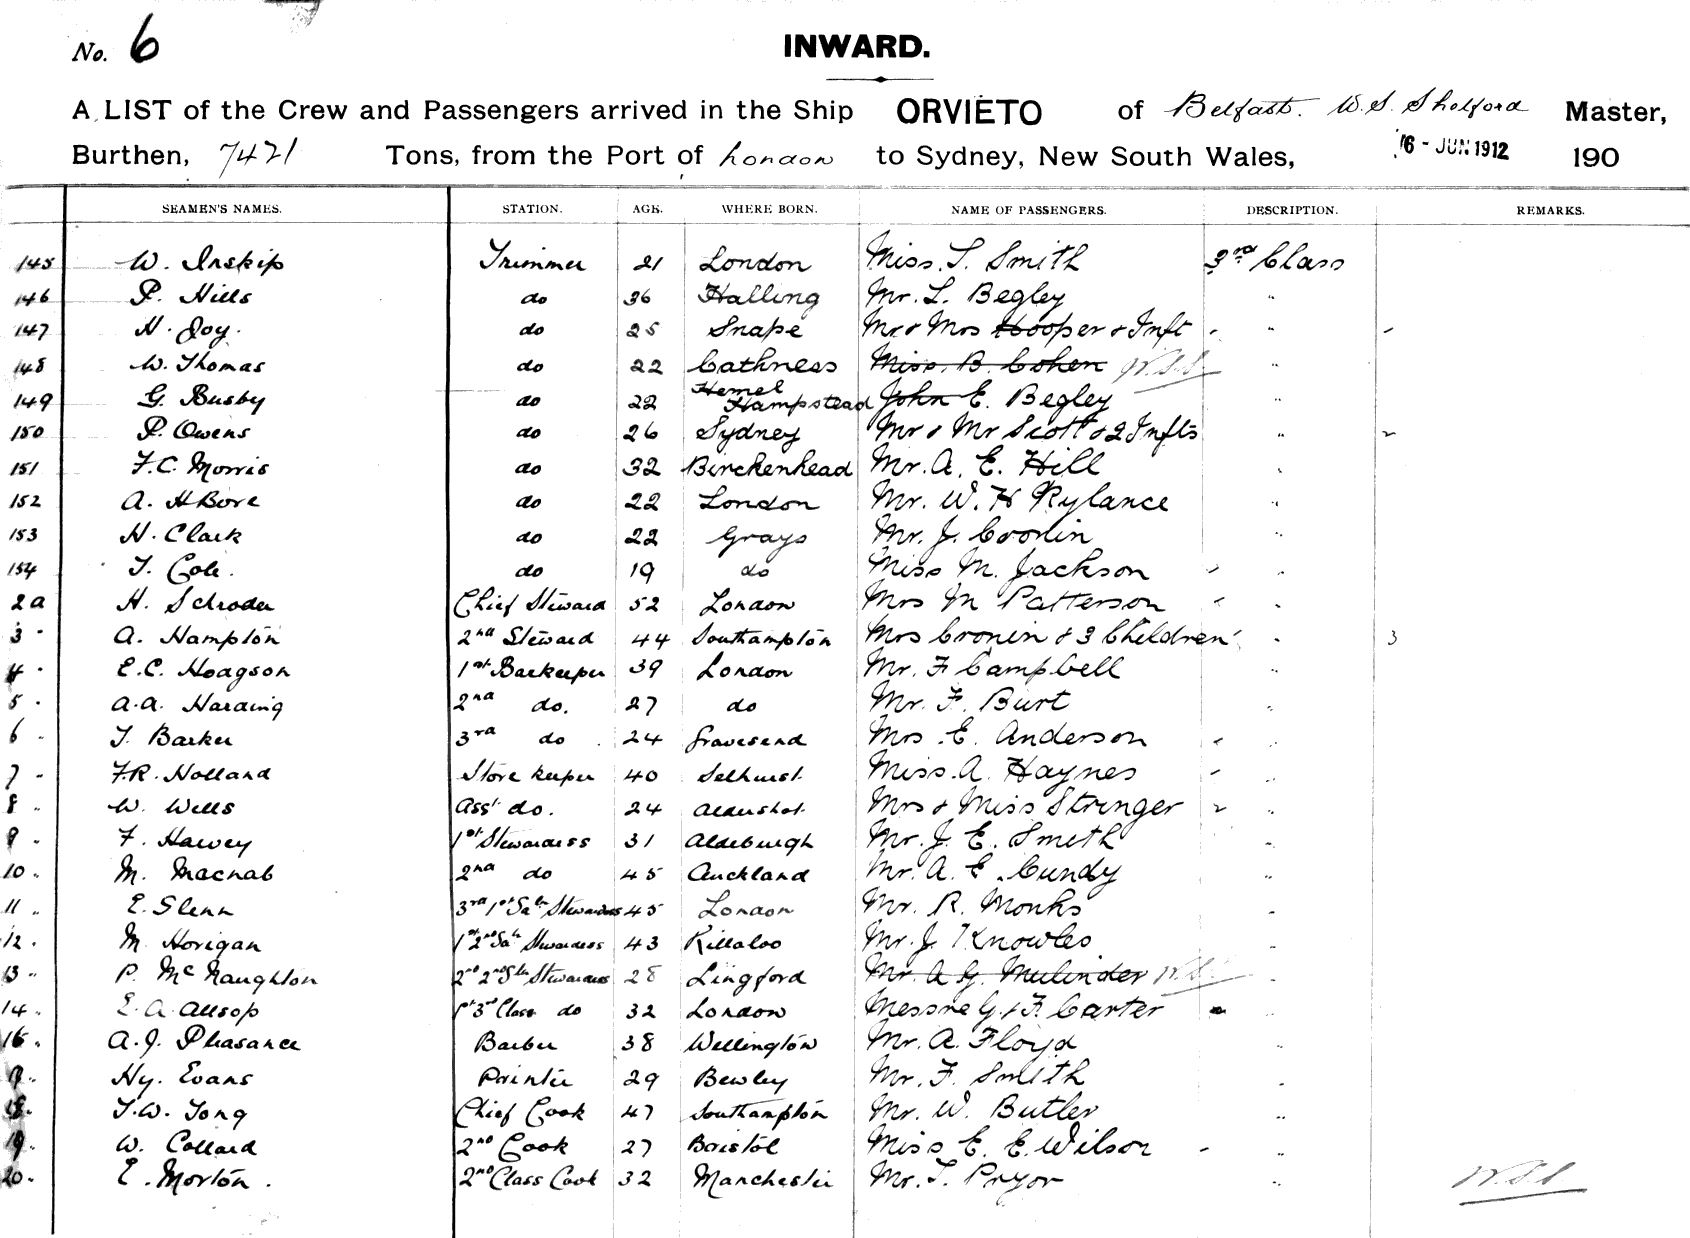 No. 6
INWARD.
A LIST of the Crew and Passengers arrived in the Ship ORVIETO of Belfast. W. S. Shelford Master,
Burthen, 7421 Tons, from the Port of London to Sydney, New South Wales, 6 - JUN 1912 190
SEAMEN'S NAMES. STATION. AGE. WHERE BORN. NAME OF PASSENGERS. DESCRIPTION. REMARKS.
145 W. Inskip Trimmer 21 London Miss. T. Smith 3rd Class
146 P. Hills do 36 Halling Mr. L. Begley "
147 H. Joy. do 25 Snape Mr & Mrs Hooper & Inft "
148 W. Thomas do 22 Cathness Miss. B. Cohen W.S.S. "
149 G. Busby do 22 Hemel Hampstead John E. Begley "
150 P. Owens do 26 Sydney Mr & Mr Scott & 2 Infts "
151 F.C. Morris do 32 Birckenhead Mr. A. E. Hill "
152 A. H Bore do 22 London Mr. W. H Rylance "
153 H. Clark do 22 Grays Mr. J. Cronin "
154 T. Cole. do 19 do Miss M. Jackson "
2a H. Schroder Chief Steward 52 London Mrs M Patterson "
3 " A. Hampton 2nd Steward 44 Southampton Mrs Cronin & 3 Children " 3
4 " E.C. Hodgson 1st Barkeeper 39 London Mr. F Campbell "
5 " A.A. Harding 2nd do. 27 do Mr. F. Burt "
6 " T. Barker 3rd do 24 Gravesend Mrs. E. Anderson "
7 " F.R. Holland Store keeper 40 Selhurst Miss. A. Haynes "
8 " W. Wells Asst do. 24 Aldershot Mrs & Miss Stringer 2 "
9 " F. Harvey 1st Stewardess 31 Aldeburgh Mr. J. E. Smith "
10 " M. Macnab 2nd do 45 Auckland Mr. A. E. Cundy "
11 " E. Glenn 3rd 1st Saln Stewardess 45 London Mr. R. Monks "
12 " M Horigan 1st 2nd Saln Stewardess 43 Killaloo Mr. J Knowles "
13 " P. McNaughton 2nd 2nd Saln Stewardess 28 Lingford Mr. A G. Mulinder W.S. "
14 " E. A. Allsop 1st 3rd Class do 32 London Messrs G. & F. Carter "
16 " A. J. Pleasance Barber 38 Wellington Mr. A. Floyd "
Hy. Evans Printer 29 Bewley Mr. F. Smith "
18 " T. W. Tong Chief Cook 47 Southampton Mr. W. Butler "
19 " W. Collard 2nd Cook 27 Bristol Miss E. E. Wilson "
20 " E. Morton. 2nd Class Cook 32 Manchester Mr. T. Pryor "
W.S.S.